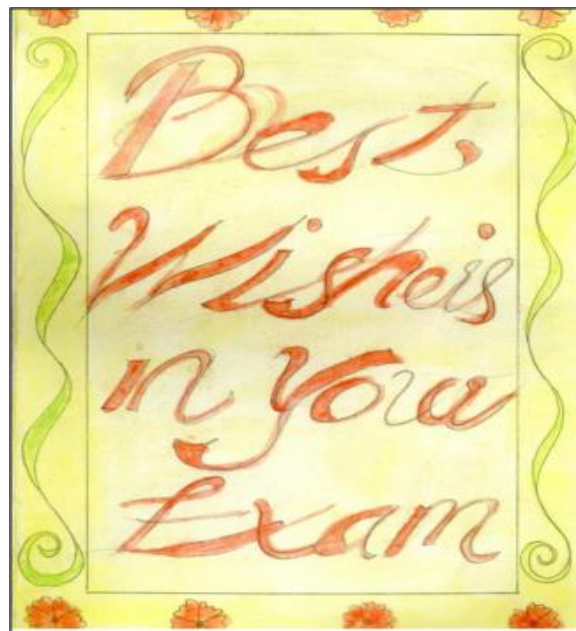 Best,
Wisheis
in your
Exam